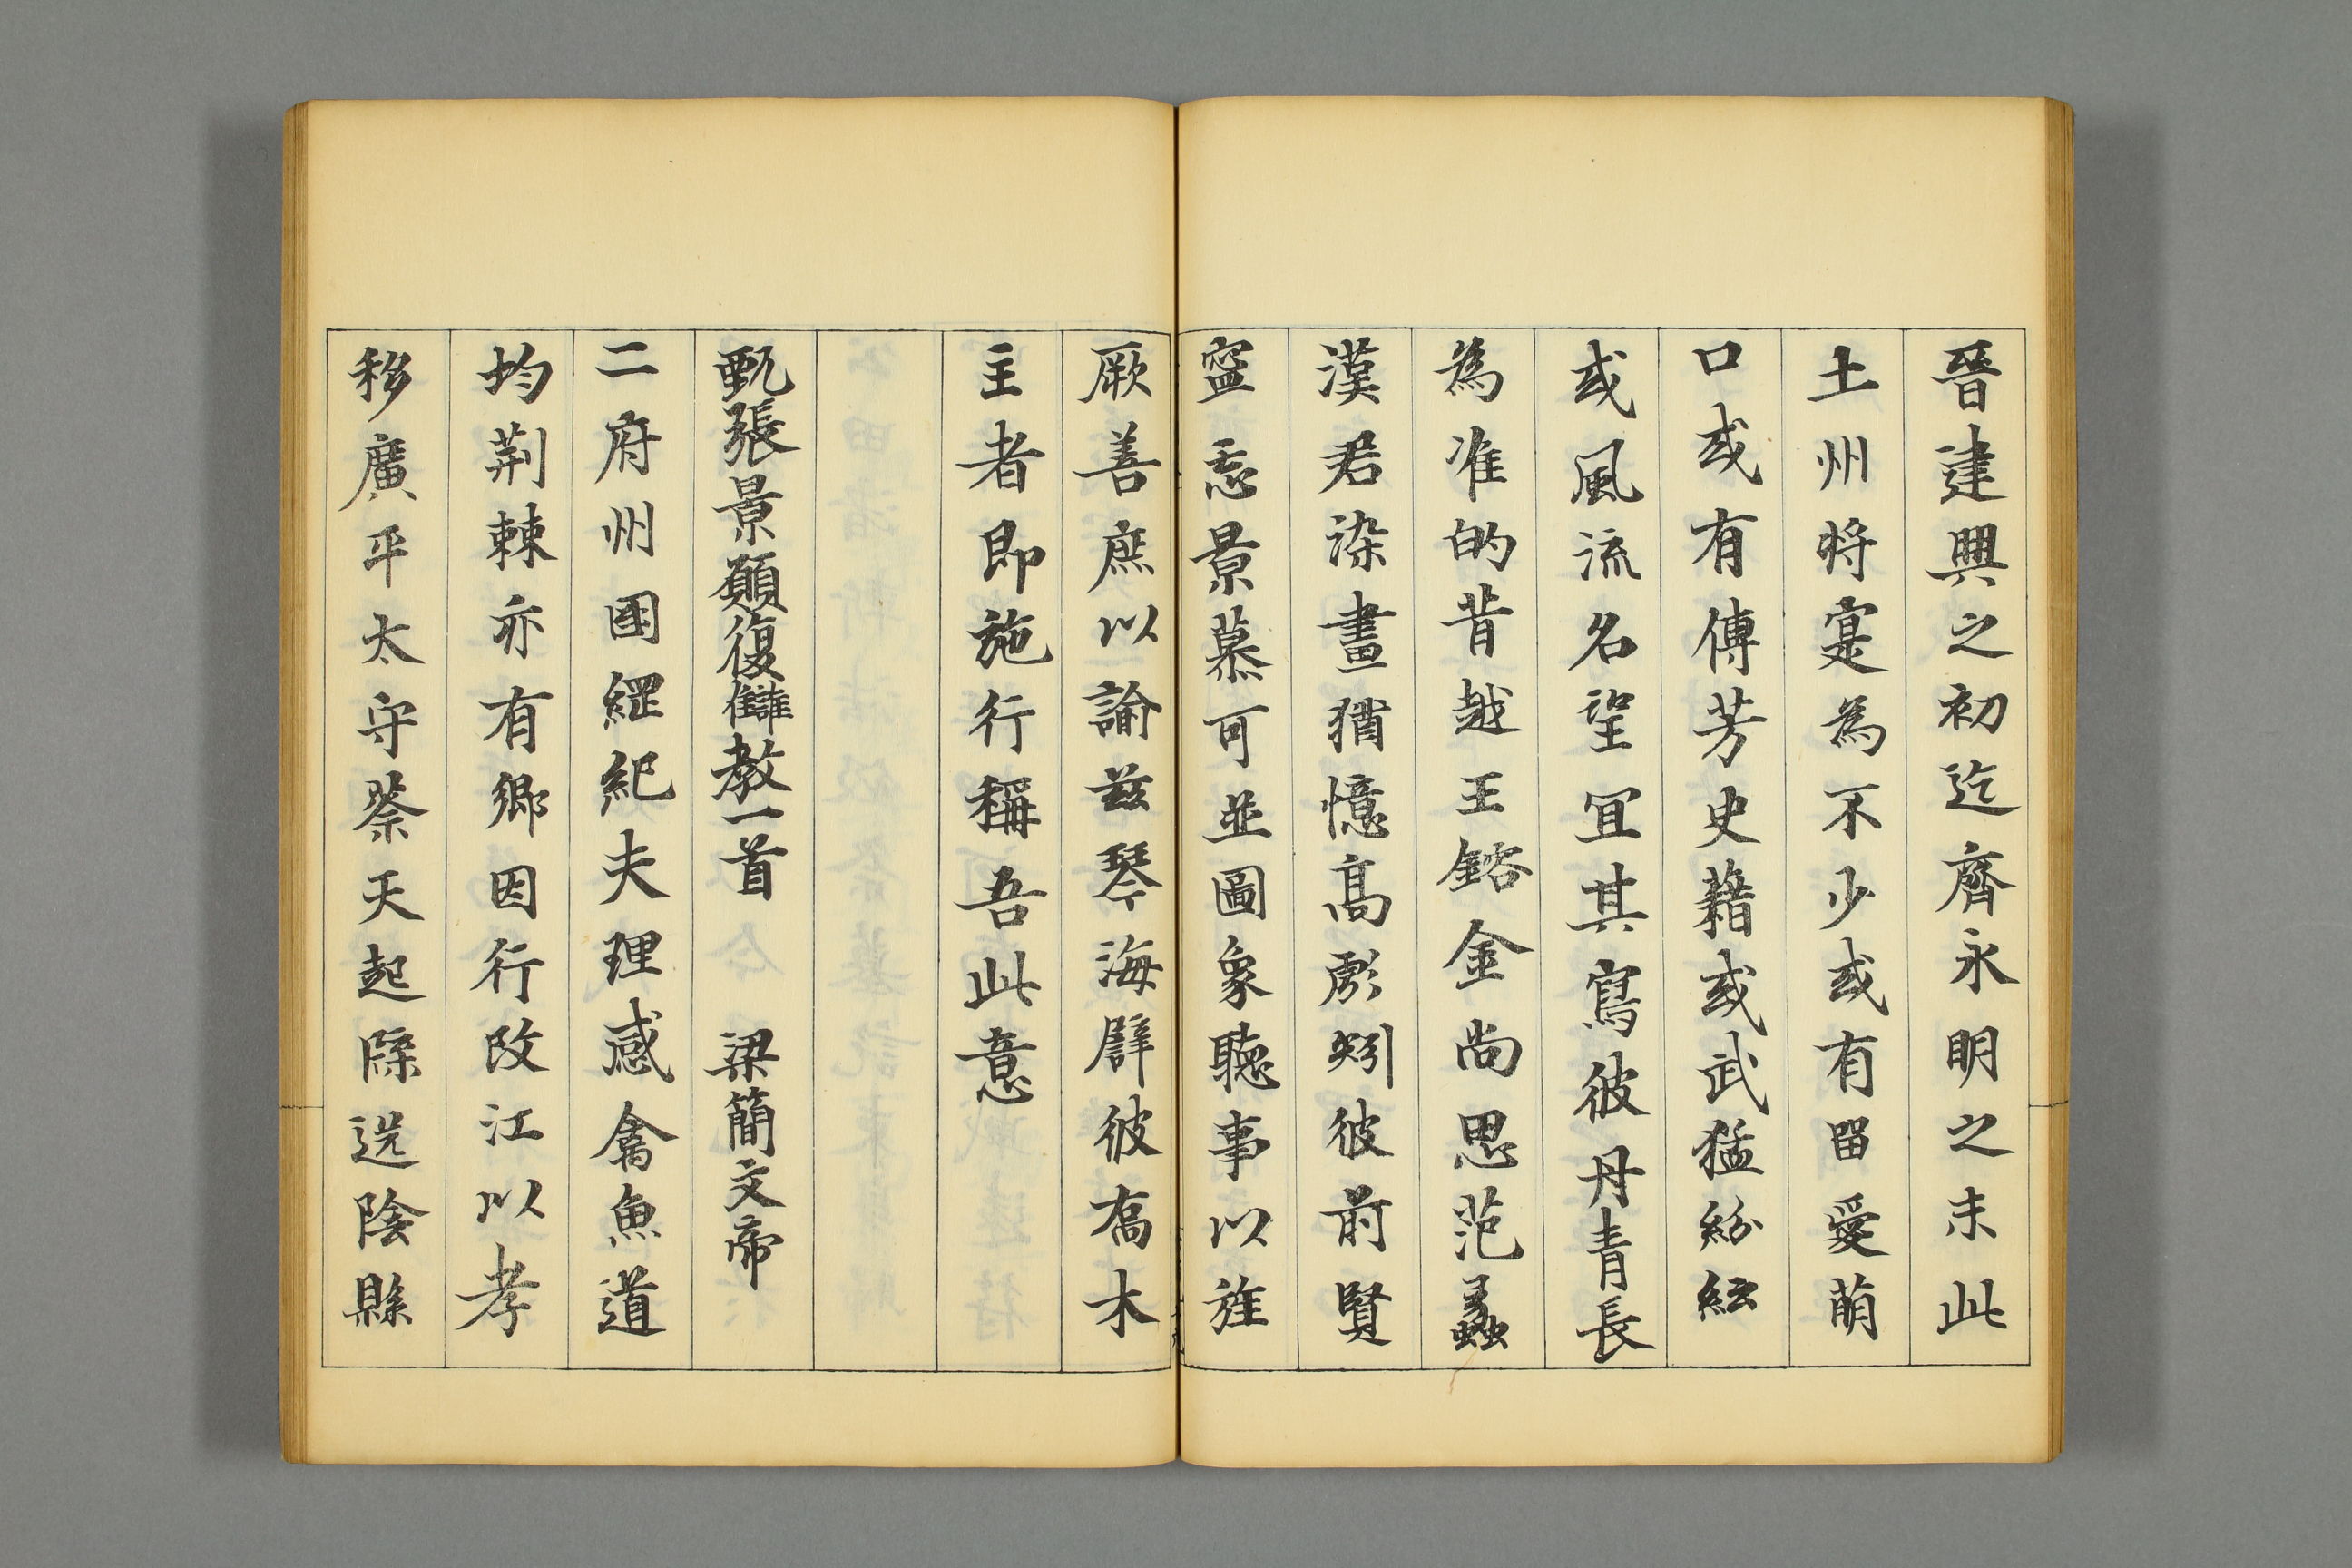 晉建興之初迄齊永明之末此
土州将寔為不少或有留愛萌
口或有傳芳史藉或武猛紛紜
或風流名望冝其寫彼丹青長
為准的昔越王鎔金尚思范蠡
漢君染畫猶憶高彪矧彼前賢
寧忘景慕可並圖象聽事以旌
厥善庶以諭兹琴海譬彼喬木
主者即施行稱吾此意
甄張景願復讎教一首　梁簡文帝
二府州國綱紀夫理感禽魚道
均荆棘亦有鄉因行改江以孝
移廣平太守蔡天起䧏選陰縣